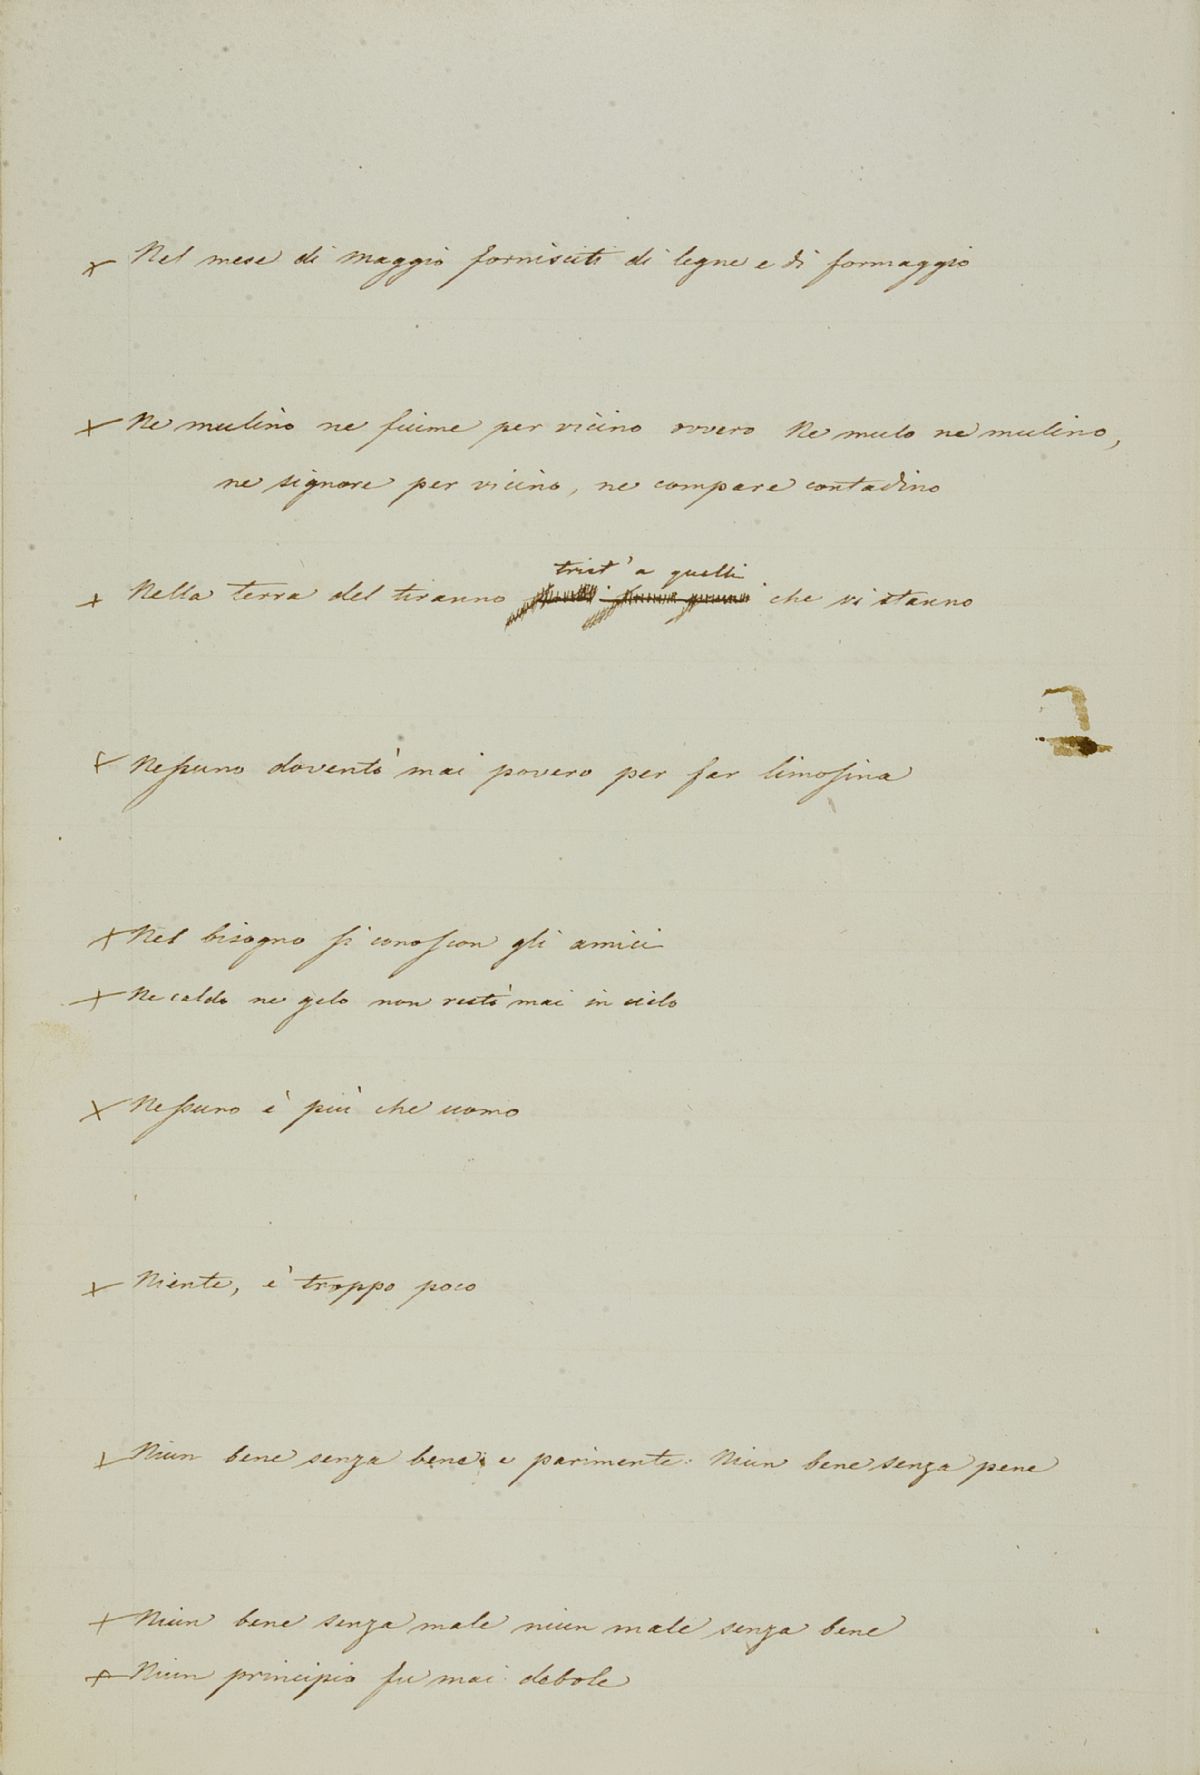 x Nel mese di Maggio fornisciti di legne e di formaggio
x Ne mulino ne fiume per vicino ovvero Ne mulo ne mulino,
ne signore per vicino, ne compare contadino
x Nella terra del tiranno trist' a quelli che vi stanno
x Nessuno doventò mai povero per far limosina
x Nel bisogno si conoscon gli amici
x Ne caldo ne gelo non restò mai in cielo
x Nessuno è più che uomo
x Niente, è troppo poco
x Niun bene senza bene e parimente: Niun bene senza pene
x Niun bene senza male niun male senza bene
x Niun principio fu mai debole